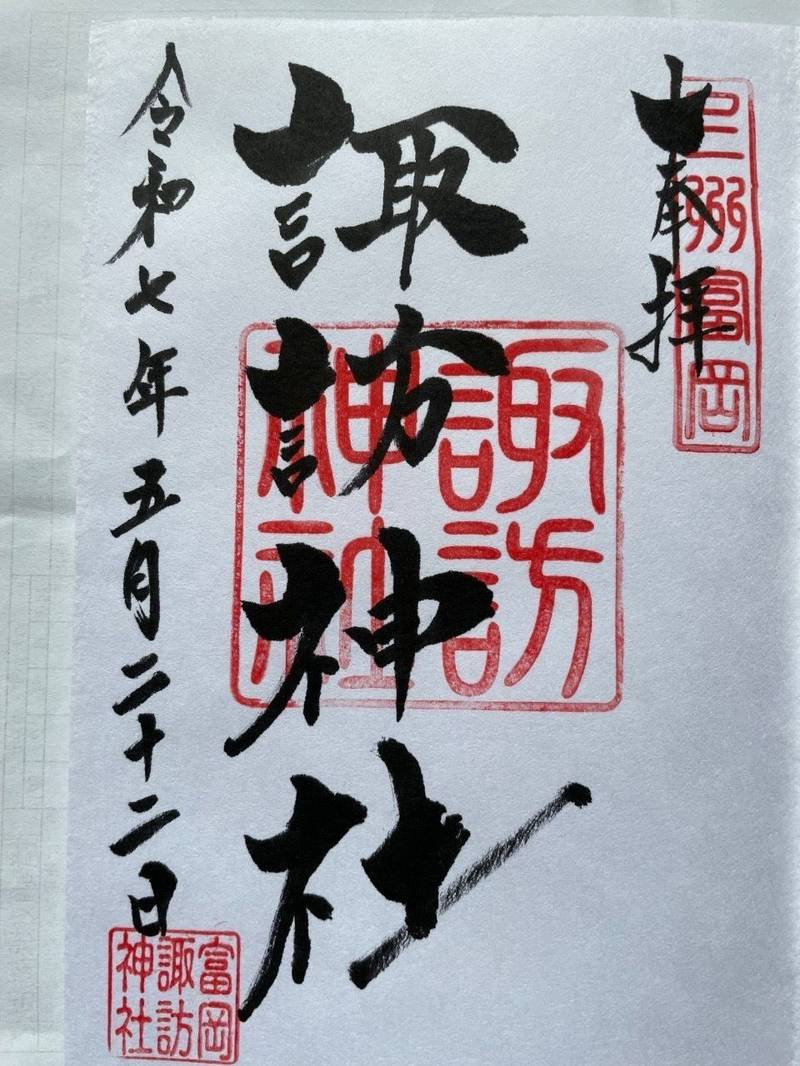 奉拝
三州富岡
諏訪神社
諏訪
神社
令和七年五月二十二日
富岡
諏訪
神社